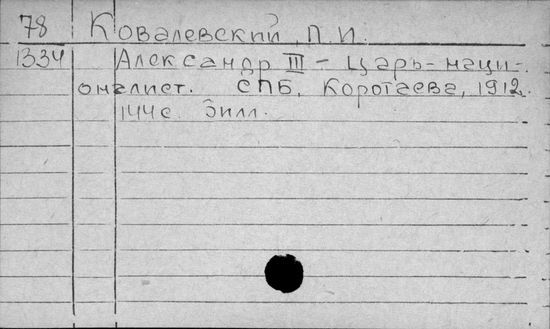 78 Ковалевский, П. И.
1334 Александр III – Царь-наци-
оналист. СПБ, Коротаева, 1912.
144 с. Зилл.